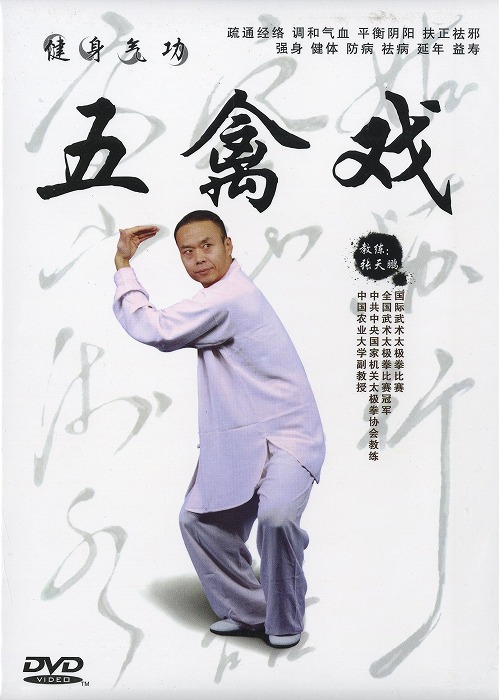 疏通经络 调和气血 平衡阴阳 扶正祛邪
强身 健体 防病 祛病 延年 益寿
健身气功
五禽戏
教练:
张天鹏
国际武术太极拳比赛
全国武术太极拳比赛冠军
中共中央国家机关太极拳协会教练
中国农业大学副教授
DVD
VIDEO
TM